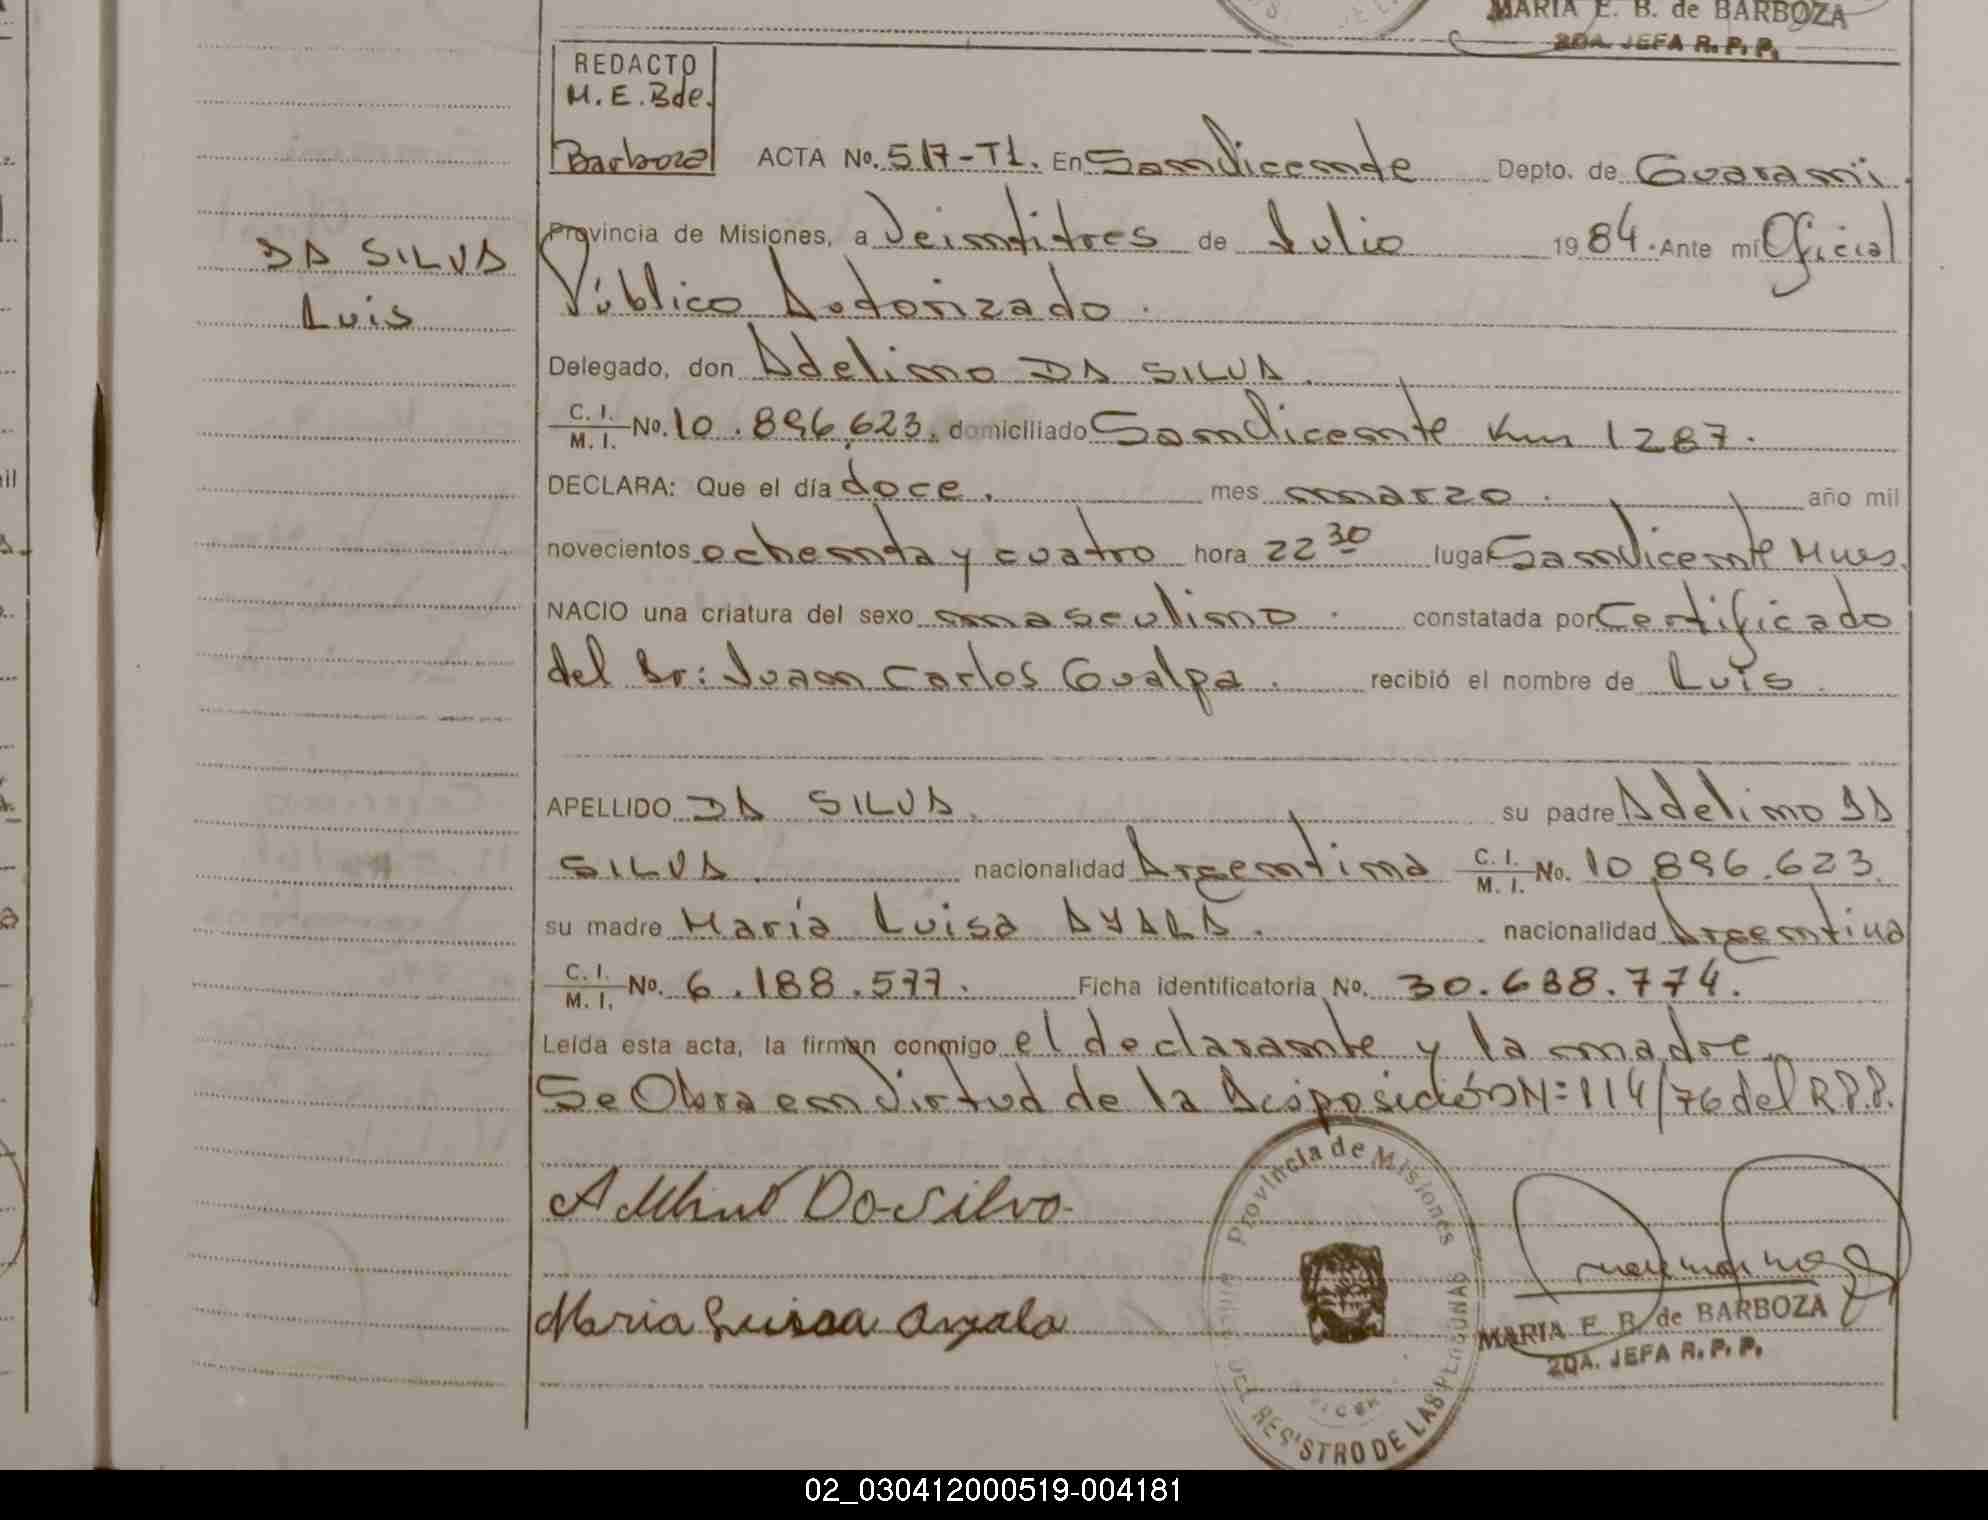 MARIA E. B. de BARBOZA
2DA. JEFA R. P. P.
REDACTO
M. E. Bde.
Barboza
ACTA No. 517-T1. En Sanvicente Depto. de Guaraní.
Provincia de Misiones, a Veintitres de Julio 1984. Ante mí Oficial
Público Autorizado.
DA SILVA
Luis
Delegado, don Adelino DA SILVA.
C. I. / M. I. No. 10.896.623. domiciliado Sanvicente Km 1287.
DECLARA: Que el día doce. mes marzo. año mil
novecientos ochenta y cuatro hora 22 30 lugar Sanvicente Mnes.
NACIO una criatura del sexo masculino. constatada por Certificado
del Dr: Juan Carlos Gualpa. recibió el nombre de Luis.
APELLIDO DA SILVA. su padre Adelino DA
SILVA. nacionalidad Argentina C. I. / M. I. No. 10.896.623.
su madre María Luisa AYALA. nacionalidad Argentina
C. I. / M. I. No. 6.188.577. Ficha identificatoria No. 30.638.774.
Leída esta acta, la firman conmigo el declarante y la madre.
Se Obra en virtud de la Disposición N=114/76 del R.P.P.
Adelino Da-Silva.
Maria Luisa Ayala
Provincia de Misiones
DEL REGISTRO DE LAS PERSONAS
MARIA E. B. de BARBOZA
2DA. JEFA R. P. P.
02_030412000519-004181